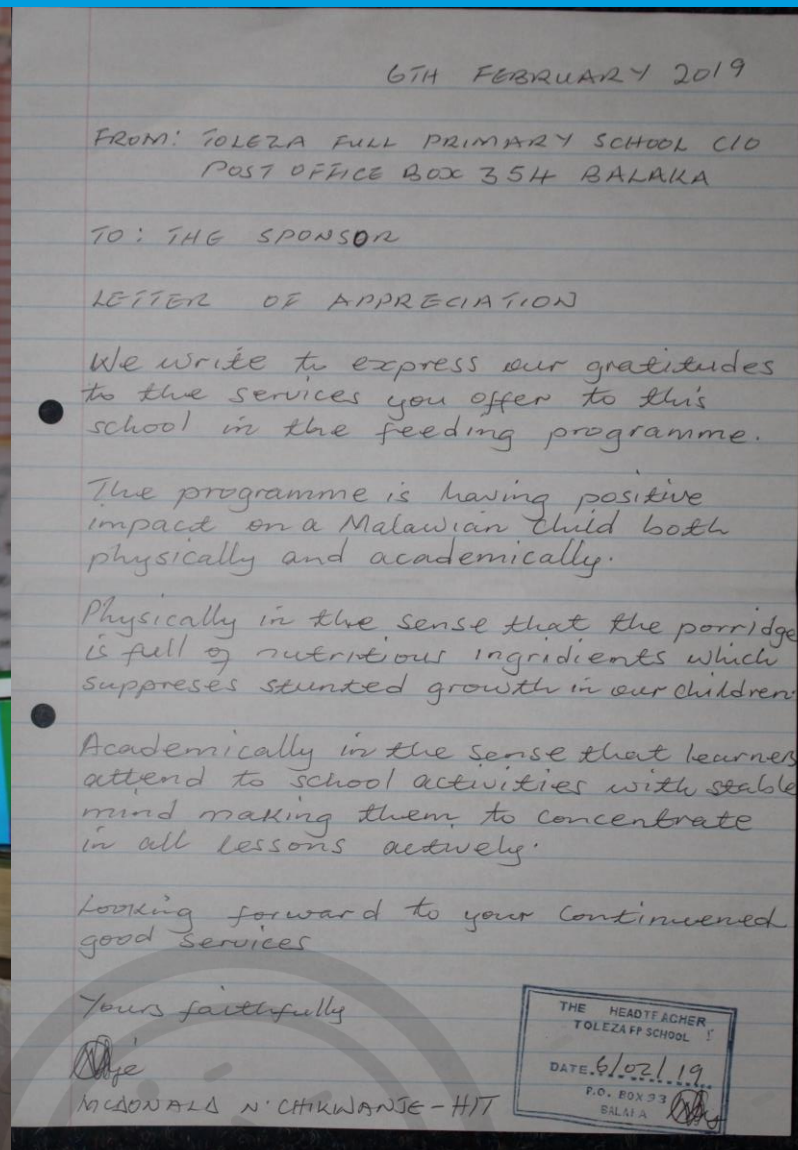 6TH FEBRUARY 2019
FROM: TOLEZA FULL PRIMARY SCHOOL C/O
POST OFFICE BOX 354 BALAKA
TO: THE SPONSOR
LETTER OF APPRECIATION
We write to express our gratitudes
to the services you offer to this
school in the feeding programme.
The programme is having positive
impact on a Malawian Child both
physically and academically.
Physically in the sense that the porridge
is full of nutritious ingridients which
suppreses stunted growth in our children.
Academically in the sense that learners
attend to school activities with stable
mind making them to concentrate
in all lessons actively.
Looking forward to your Continuened
good services
Yours faithfully
MCDONALD N. CHIKWANJE - H/T
THE HEADTEACHER
TOLEZA FP SCHOOL
DATE 6/02/19
P.O. BOX 93
BALAKA